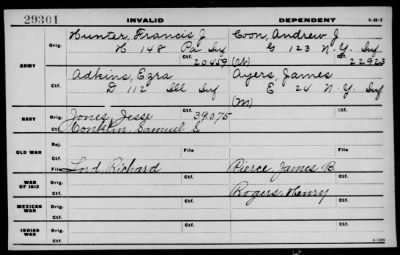 29301 INVALID DEPENDENT
Hunter, Francis J. Coon, Andrew J
ARMY Orig. H 148 Pa Inf G 123 N.Y. Inf
Ctf. 20459 (W) Ctf. 22923
Adkins, Ezra Ayers, James
Orig. D 112 Ill Inf E 24 N.Y. Inf
Ctf. (M)
NAVY Orig. Jones, Jesse Ctf. 39075
Conklin, Samuel S
Ctf.
OLD WAR File File
Ctf.
WAR OF 1812 File Lord Richard Pierce, James B.
Ctf. Rogers, Henry
MEXICAN WAR Orig.
Ctf.
INDIAN WAR Orig.
Ctf.